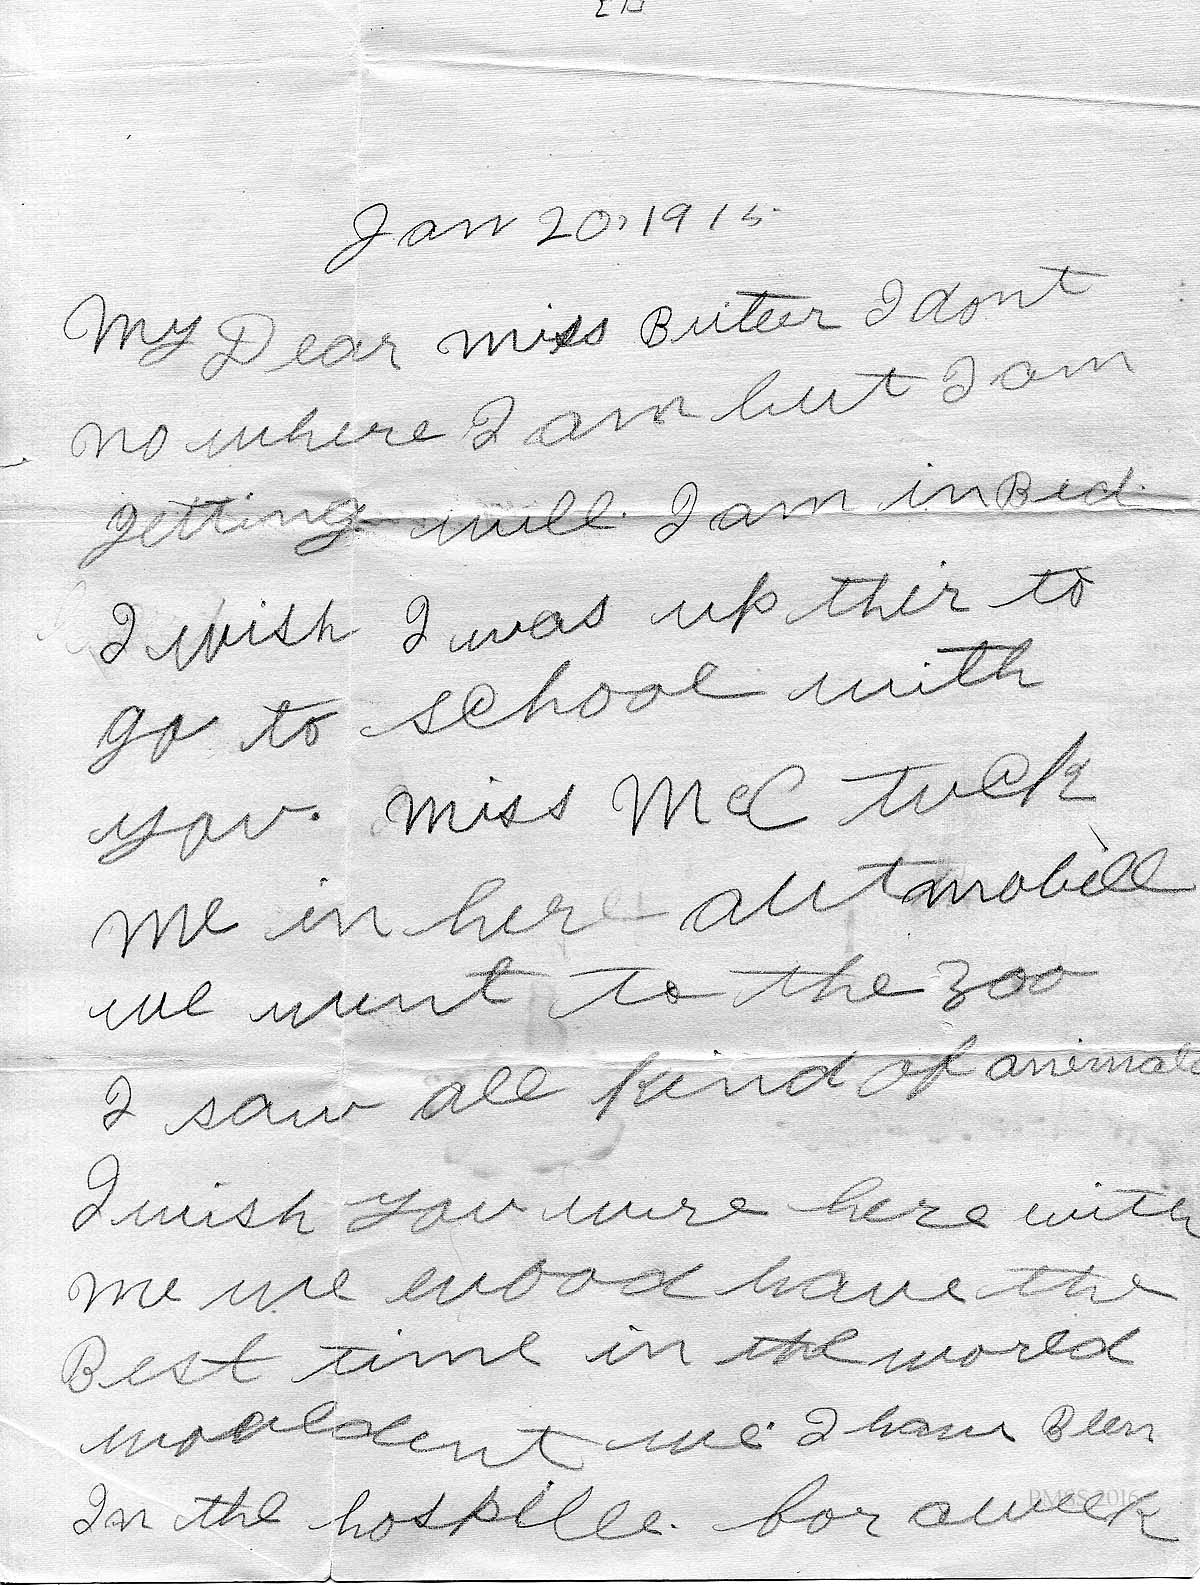 Jan 20, 1915
My Dear miss Buteer I dont
no where I am but I am
getting well. I am in Bed.
I wish I was up thir to
go to school with
you. Miss McC tuck
me in here autmobill
we went to the zoo
I saw all kind of animals
I wish you were here with
me we wood have the
Best time in the world
wooldent we. I have Been
In the hospille. for a week
PMSS 2016